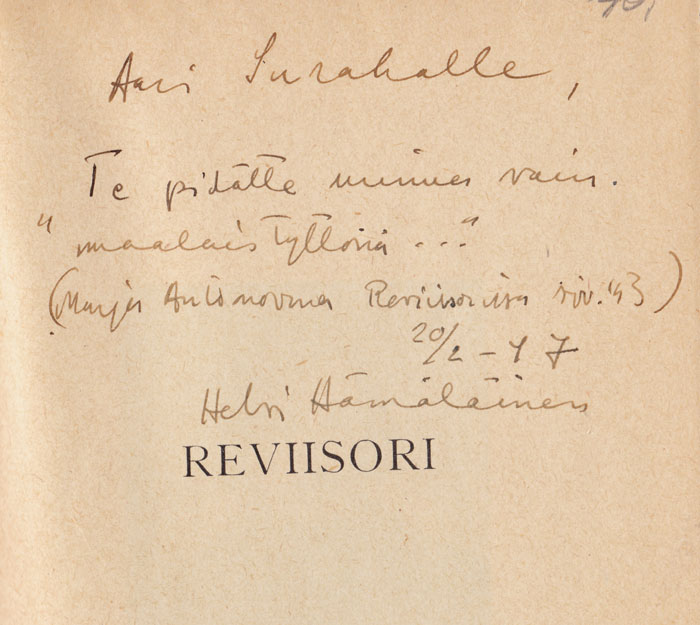 Aari Surakalle,
Te pidätte minua vain.
"maalaistyttönä ..."
(Marja Antonovna Reviisorissa siv. 43)
20/2 - 47
Helvi Hämäläinen
REVIISORI